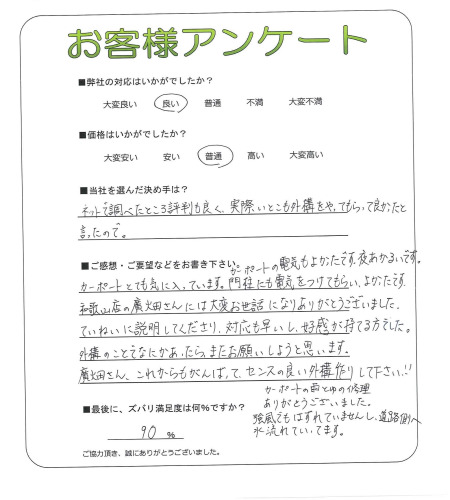 お客様アンケート
■弊社の対応はいかがでしたか？
大変良い 良い 普通 不満 大変不満
■価格はいかがでしたか？
大変安い 安い 普通 高い 大変高い
■当社を選んだ決め手は？
ネットで調べたところ評判も良く、実際いとこも外構をやってもらって良かったと
言ったので。
■ご感想・ご要望などをお書き下さい。
カーポートの電気もよかったです。夜あかるいです。
カーポートとても気に入っています。門柱にも電気をつけてもらい、よかったです。
和歌山店の廣畑さんには大変お世話になりありがとうございました。
ていねいに説明してくださり、対応も早いし、好感が持てる方でした。
外構のことでなにかあったら、またお願いしようと思います。
廣畑さん、これからもがんばって、センスの良い外構作りして下さい!!
カーポートの雨とゆの修理
ありがとうございました。
強風でもはずれていませんし、道路側へ
水流れていってます。
■最後に、ズバリ満足度は何％ですか？
90 %
ご協力頂き、誠にありがとうございました。